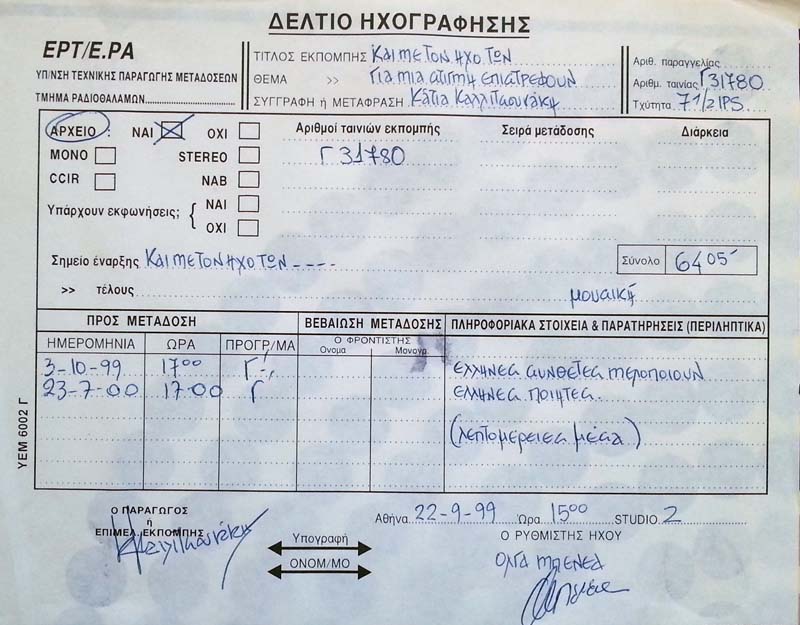 ΔΕΛΤΙΟ ΗΧΟΓΡΑΦΗΣΗΣ
ΕΡΤ/Ε.ΡΑ
ΥΠ/ΝΣΗ ΤΕΧΝΙΚΗΣ ΠΑΡΑΓΩΓΗΣ ΜΕΤΑΔΟΣΕΩΝ
ΤΜΗΜΑ ΡΑΔΙΟΘΑΛΑΜΩΝ
ΤΙΤΛΟΣ ΕΚΠΟΜΠΗΣ ΚΑΙ ΜΕ ΤΟΝ ΗΧΟ ΤΩΝ
ΘΕΜΑ >> ΓΙΑ ΜΙΑ ΣΤΙΓΜΗ ΕΠΙΣΤΡΕΦΟΥΝ
ΣΥΓΓΡΑΦΗ ή ΜΕΤΑΦΡΑΣΗ Κάτια Καλλιτσουνάκη
Αριθ. παραγγελίας
Αριθμ. ταινίας Γ31780
Τχύτητα 7 1/2 IPS
ΑΡΧΕΙΟ : ΝΑΙ ΟΧΙ
ΜΟΝΟ STEREO
CCIR NAB
Υπάρχουν εκφωνήσεις; ΝΑΙ
ΟΧΙ
Αριθμοί ταινιών εκπομπής Σειρά μετάδοσης Διάρκεια
Γ 31780
Σημείο έναρξης ΚΑΙ ΜΕ ΤΟΝ ΗΧΟ ΤΩΝ ----
Σύνολο 64 05"
>> τέλους μουσική
ΠΡΟΣ ΜΕΤΑΔΟΣΗ ΒΕΒΑΙΩΣΗ ΜΕΤΑΔΟΣΗΣ ΠΛΗΡΟΦΟΡΙΑΚΑ ΣΤΟΙΧΕΙΑ & ΠΑΡΑΤΗΡΗΣΕΙΣ (ΠΕΡΙΛΗΠΤΙΚΑ)
ΗΜΕΡΟΜΗΝΙΑ ΩΡΑ ΠΡΟΓΡ/ΜΑ Ο ΦΡΟΝΤΙΣΤΗΣ
Ονομα Μονογρ.
3-10-99 17 00 Γ ΕΛΛΗΝΕΣ ΣΥΝΘΕΤΕΣ ΜΕΛΟΠΟΙΟΥΝ
23-7-00 17:00 Γ ΕΛΛΗΝΕΣ ΠΟΙΗΤΕΣ.
(λεπτομέρειες μέσα)
ΥΕΜ 6002 Γ
Ο ΠΑΡΑΓΩΓΟΣ
ή
ΕΠΙΜΕΛ. ΕΚΠΟΜΠΗΣ
Υπογραφή
ΟΝΟΜ/ΜΟ
Αθήνα 22-9-99 Ώρα 15 00 STUDIO 2
Ο ΡΥΘΜΙΣΤΗΣ ΗΧΟΥ
ΟΛΓΑ ΜΠΕΝΕΑ